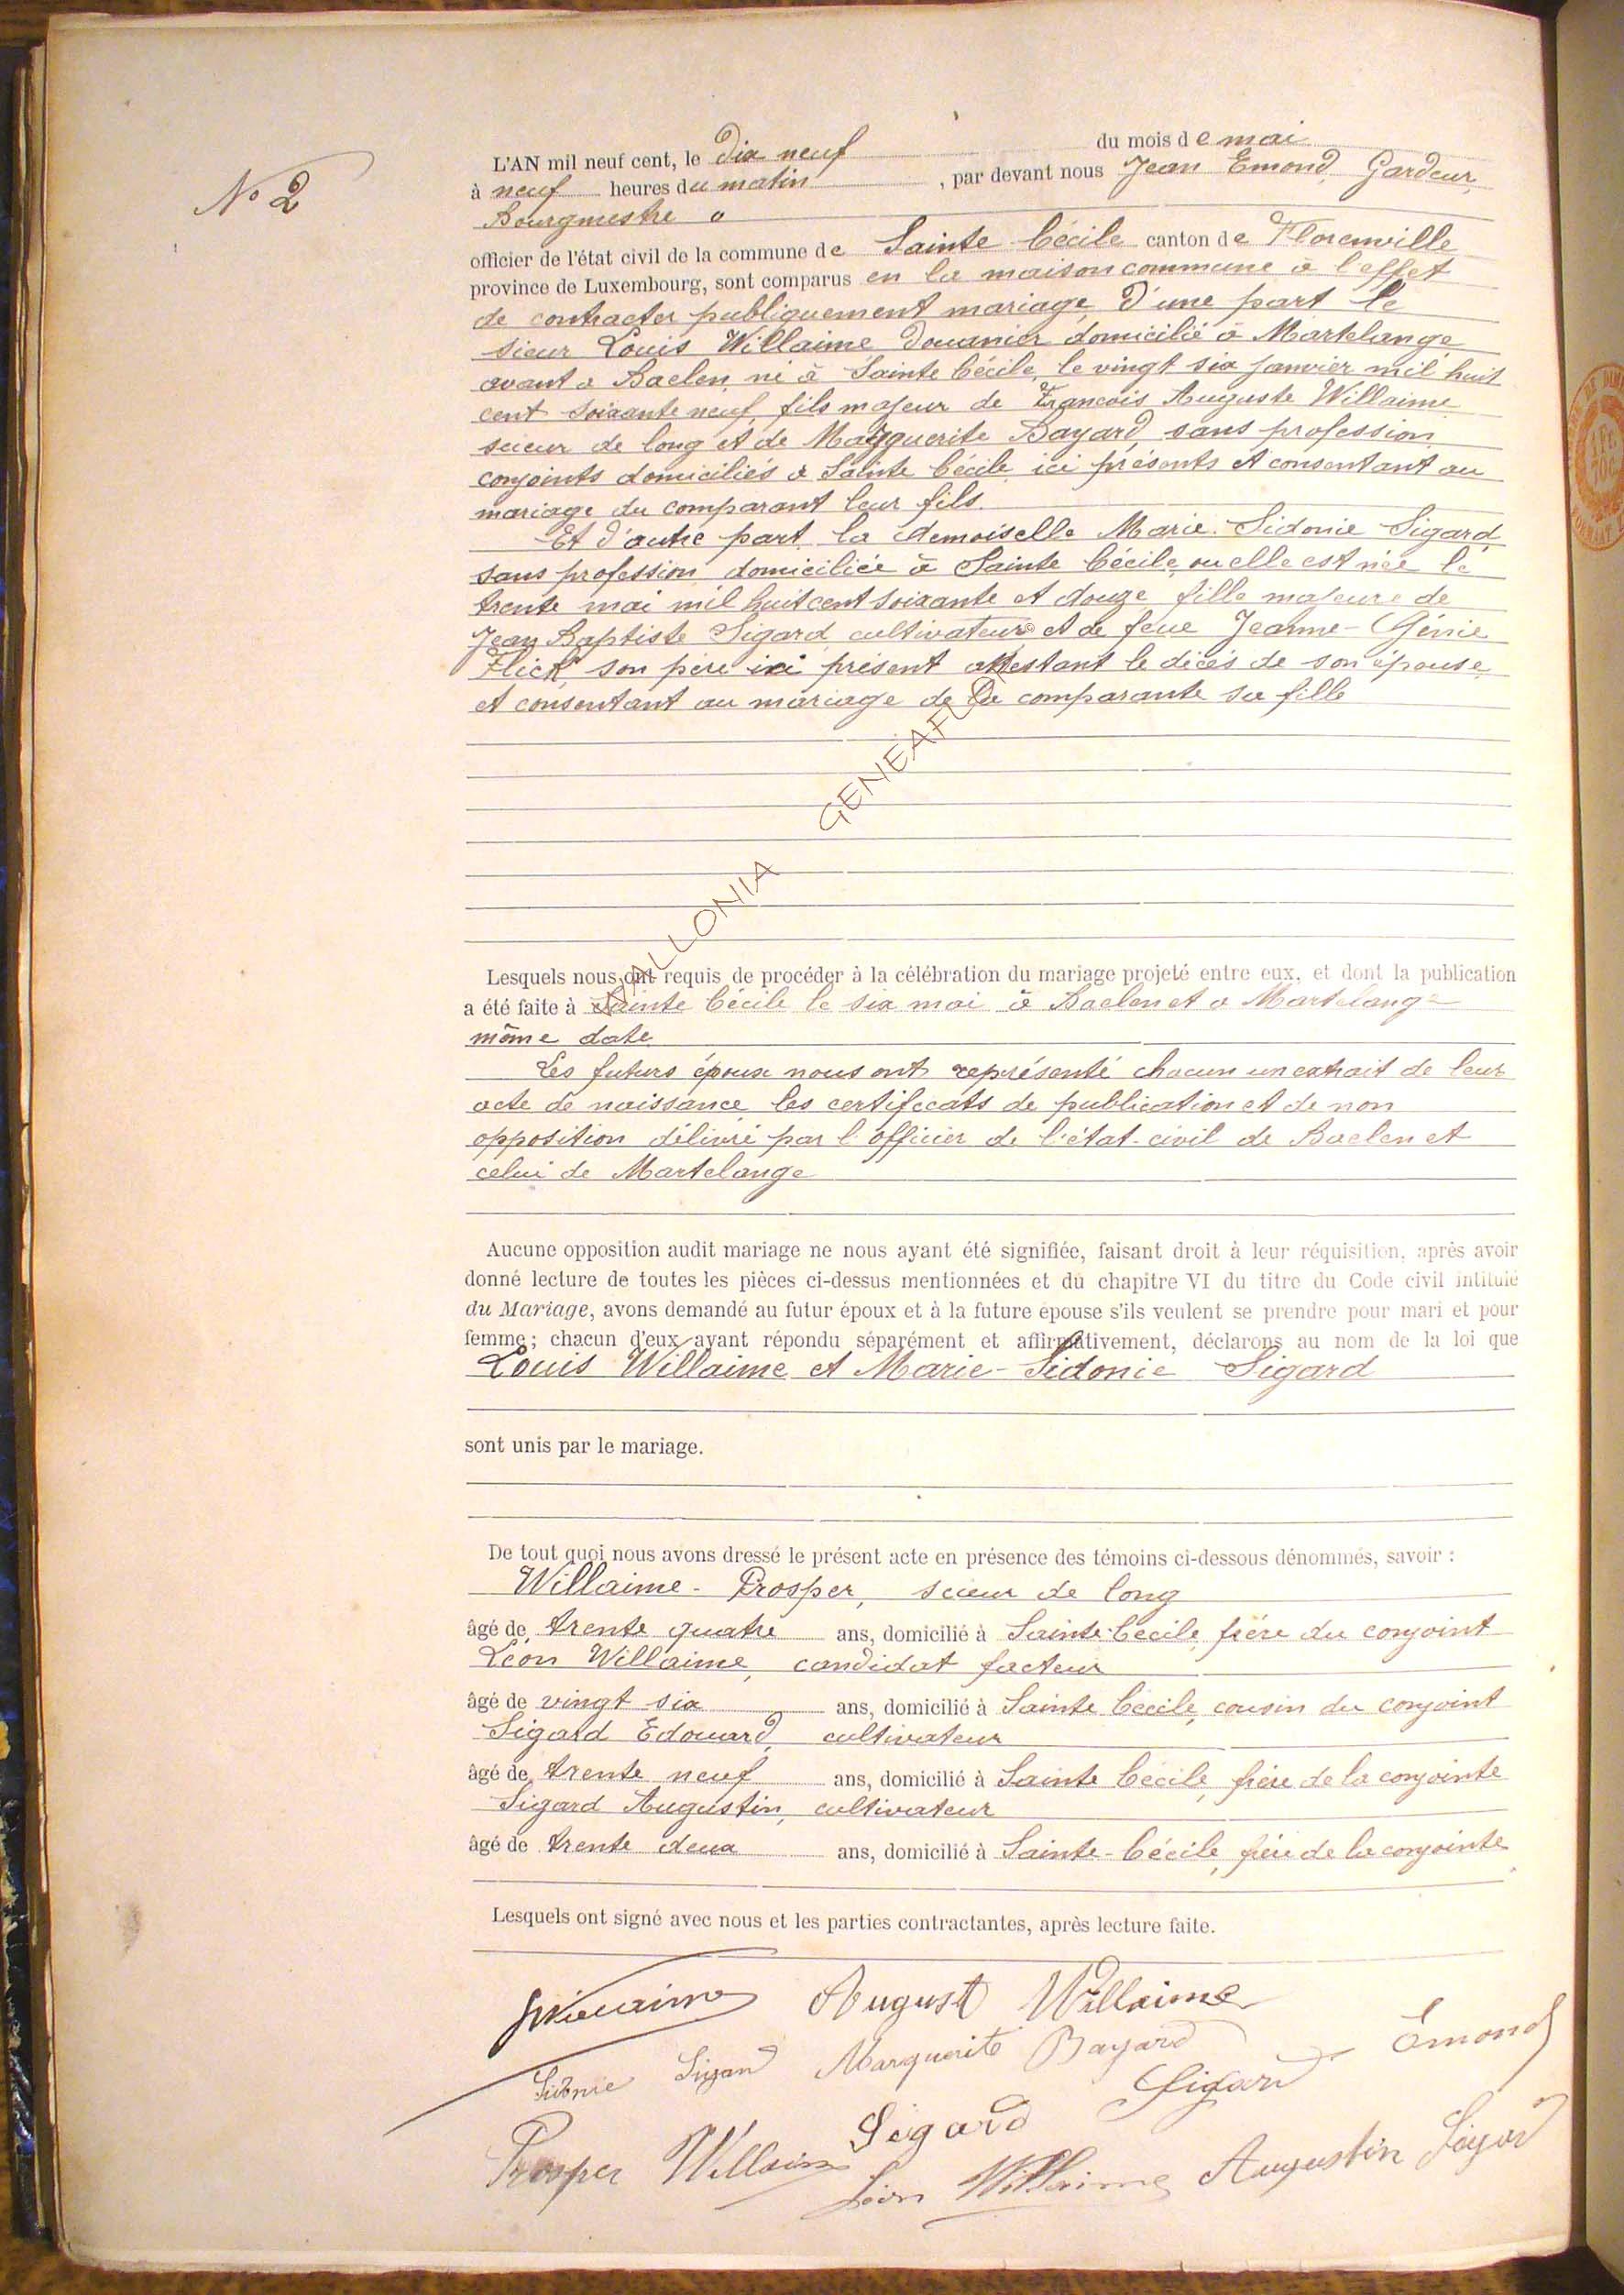 N° 2
L'AN mil neuf cent, le dix neuf du mois de mai
à neuf heures du matin, par devant nous Jean Emond, Gardeur,
Bourgmestre
officier de l'état civil de la commune de Sainte Cécile canton de Florenville
province de Luxembourg, sont comparus en la maison commune à l'effet
de contracter publiquement mariage, d'une part le
sieur Louis Willaime douanier domicilié à Martelange
avant a Baelen né à Sainte Cécile, le vingt six janvier mil huit
cent soixante neuf, fils majeur de François Auguste Willaime
scieur de long et de Marguerite Bayard, sans profession
conjoints domiciliés à Sainte Cécile ici présents et consentant au
mariage du comparant leur fils.
Et d'autre part la demoiselle Marie Sidonie Sigard,
sans profession domiciliée à Sainte Cécile, ou elle est née le
trente mai mil huit cent soixante et douze fille majeure de
Jean Baptiste Sigard cultivateur et de feue Jeanne-Génie
Flick, son père ici présent attestant le décès de son épouse
et consentant au mariage de la comparante sa fille
© WALLONIA GENEAFLUX
Lesquels nous ont requis de procéder à la célébration du mariage projeté entre eux, et dont la publication
a été faite à Sainte Cécile le six mai à Baelen et a Martelange
même date
Les futurs époux nous ont représenté chacun un extrait de leur
acte de naissance les certificats de publication et de non
opposition délivré par l'officier de l'état-civil de Baelen et
celui de Martelange
Aucune opposition audit mariage ne nous ayant été signifiée, faisant droit à leur réquisition, après avoir
donné lecture de toutes les pièces ci-dessus mentionnées et du chapitre VI du titre du Code civil intitulé
du Mariage, avons demandé au futur époux et à la future épouse s'ils veulent se prendre pour mari et pour
femme ; chacun d'eux ayant répondu séparément et affirmativement, déclarons au nom de la loi que
Louis Willaime et Marie-Sidonie Sigard
sont unis par le mariage.
De tout quoi nous avons dressé le présent acte en présence des témoins ci-dessous dénommés, savoir :
Willaime - Prosper, scieur de long
âgé de trente quatre ans, domicilié à Sainte Cécile, frère du conjoint
Léon Willaime, candidat facteur
âgé de vingt six ans, domicilié à Sainte Cécile, cousin du conjoint
Sigard Edouard, cultivateur
âgé de trente neuf ans, domicilié à Sainte Cécile, frère de la conjointe
Sigard Augustin, cultivateur
âgé de trente deux ans, domicilié à Sainte-Cécile, frère de la conjointe
Lesquels ont signé avec nous et les parties contractantes, après lecture faite.
Willaime August Willaime
Sidonie Sigard Marguerite Bayard Sigard Emond
Prosper Willaime Sigard Léon Willaime Augustin Sigard